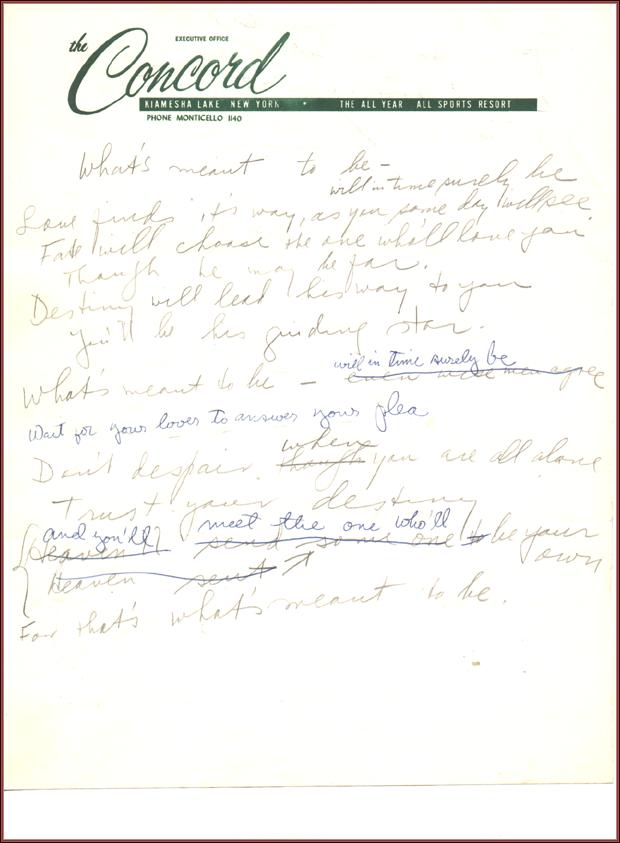 EXECUTIVE OFFICE
the Concord
KIAMESHA LAKE NEW YORK • THE ALL YEAR ALL SPORTS RESORT
PHONE MONTICELLO 1140
What's meant to be –
will in time surely be
Love finds it's way, as you some day will see
Fate will choose the one who'll love you
Though he may be far.
Destiny will lead his way to you
You'll be his guiding star.
will in time surely be
What's meant to be – even wise men agree
Wait for your lover to answer your plea
when
Don't despair. though you are all alone
Trust your destiny
and you'll meet the one who'll
Heaven send some one to be your own
Heaven sent
For that's what's meant to be.